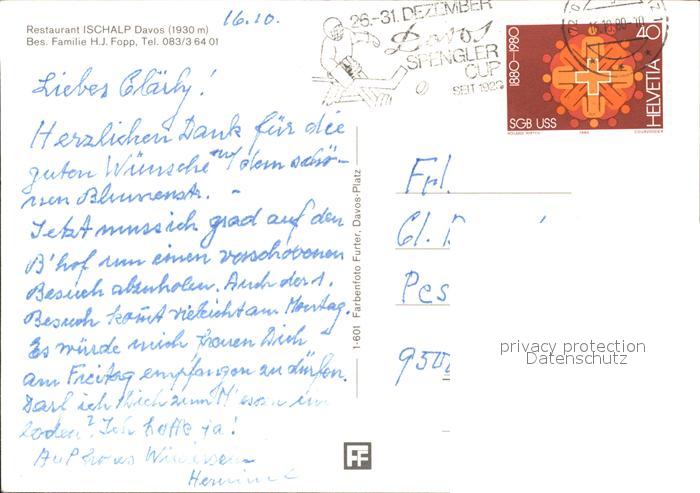 Restaurant ISCHALP Davos (1930 m)
Bes. Familie H.J. Fopp, Tel. 083/3 64 01
16.10.
Liebes Clärly!
Herzlichen Dank für die
guten Wünsche mit dem schö-
nen Blumenstr. -
Jetzt muss ich grad auf den
B'hof um einen verschobenen
Besuch abzuholen. Auch der 1.
Besuch kommt vielleicht am Montag.
Es würde mich freuen Dich
am Freitag empfangen zu dürfen.
Darf ich Dich zum M'essen ein
laden? Ich hoffe ja!
Auf frohes Wiedersehn
1-601 Farbenfoto Furter, Davos-Platz
26.-31. DEZEMBER
Davos
SPENGLER
CUP
SEIT 1923
1880-1980
40
HELVETIA
SGB USS
Frl.
Cl.
Pes
950
privacy protection
Datenschutz